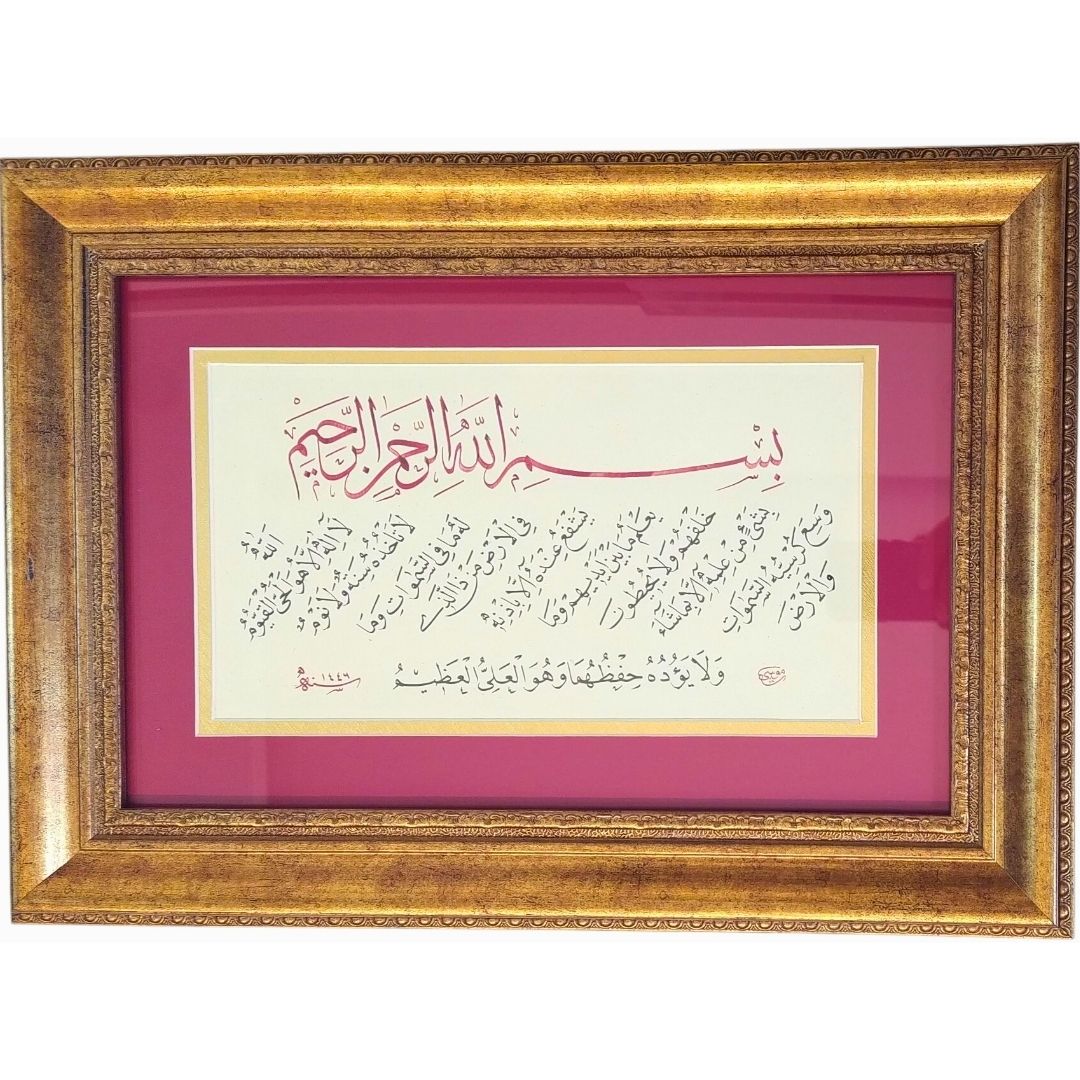 بِسْمِ اللّٰهِ الرَّحْمٰنِ الرَّحِيمِ
اَللّٰهُ
لَا اِلٰهَ اِلَّا هُوَ الْحَىُّ الْقَيُّومُ
لَا تَأْخُذُهُ سِنَةٌ وَلَا نَوْمٌ
لَهُ مَا فِى السَّمٰوَاتِ وَمَا
فِى الْاَرْضِ مَنْ ذَا الَّذِى
يَشْفَعُ عِنْدَهُ اِلَّا بِاِذْنِهِ
يَعْلَمُ مَا بَيْنَ اَيْدِيهِمْ وَمَا
خَلْفَهُمْ وَلَا يُحِيطُونَ
بِشَىْءٍ مِنْ عِلْمِهِ اِلَّا بِمَا شَٓاءَ
وَسِعَ كُرْسِيُّهُ السَّمٰوَاتِ
وَالْاَرْضَ
وَلَا يَؤُدُهُ حِفْظُهُمَا وَهُوَ الْعَلِىُّ الْعَظِيمُ
سنه ١٤٤٦